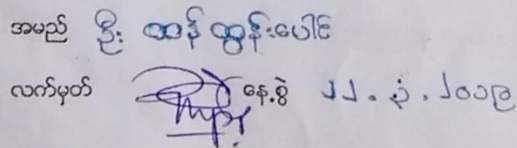 အမည် ဦး ထန် ထွန်းပေါင်
လက်မှတ် နေ့စွဲ ၂၂.၃.၂၀၁၉